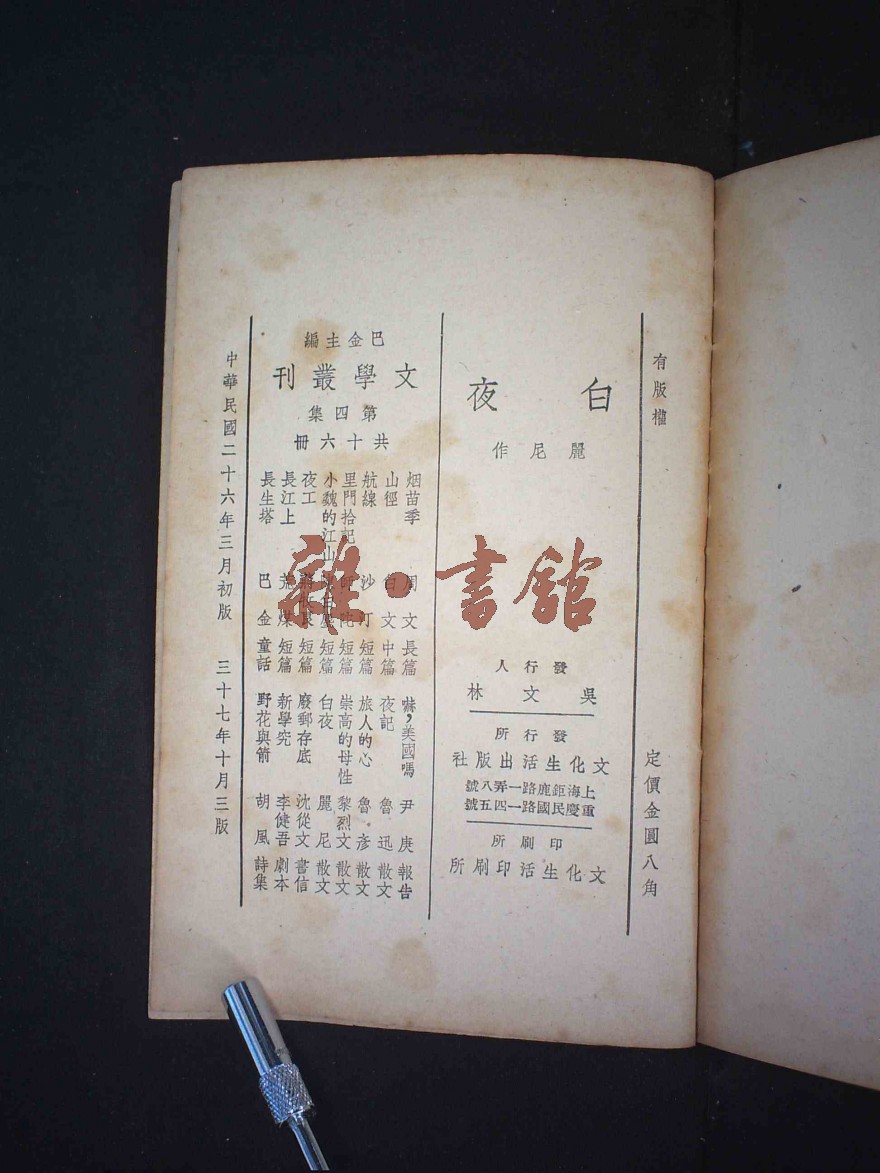 有版權
定價金圓八角
白夜
麗尼作
發行人
吳文林
發行所
文化生活出版社
上海鉅鹿路一弄八號
重慶民國路一四五號
印刷所
文化生活印刷所
巴金主編
文學叢刊
第四集
共十六冊
烟苗季 周文 長篇
山徑 白文 中篇
航線 沙汀 短篇
里門拾記 師陀 短篇
小魏的江山 陳白塵 短篇
夜工 蔣牧良 短篇
長江上 荒煤 短篇
長生塔 巴金 童話
嚇，美國嗎 尹庚 報告
夜記 魯迅 散文
旅人的心 魯彥 散文
崇高的母性 黎烈文 散文
白夜 麗尼 散文
廢郵存底 沈從文 書信
新學究 李健吾 劇本
野花與箭 胡風 詩集
中華民國二十六年三月初版 三十七年十月三版
雜·書館